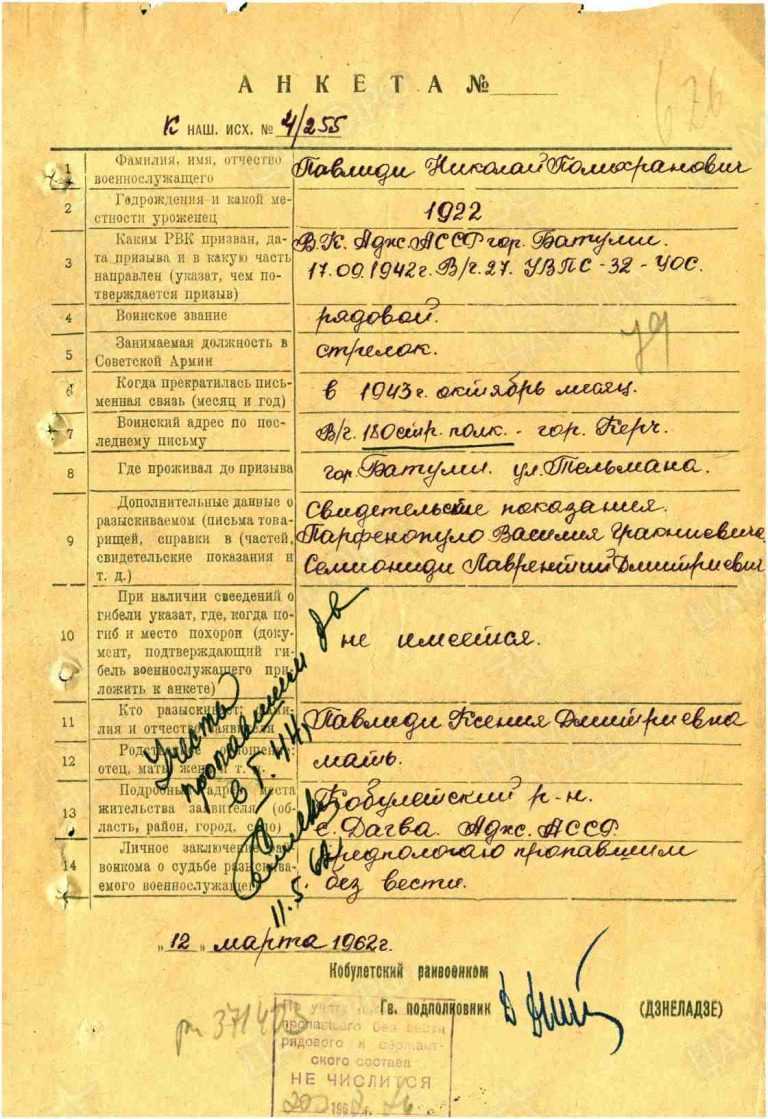 АНКЕТА №
676
К НАШ. ИСХ. № 4/255
1
Фамилия, имя, отчество
военнослужащего
Павлиди Николай Помхранович
2
Годрождения и какой ме-
стности уроженец
1922
3
Каким РВК призван, да-
та призыва и в какую часть
направлен (указат, чем по-
тверждается призыв)
В.К. Адж. АССР гор. Батуми.
17.09.1942г. В/г. 27. УВПС-32-УОС.
4
Воинское звание
рядовой.
5
Занимаемая должность в
Советской Армии
стрелок.
79
6
Когда прекратилась пись-
менная связь (месяц и год)
в 1943г. октябрь месяц.
7
Воинский адрес по пос-
леднему письму
В/г. 180 стр. полк. - гор. Керч.
8
Где проживал до призыва
гор. Батуми. ул. Тельмана.
9
Дополнительные данные о
разыскиваемом (письма това-
рищей, справки в (частей,
свидетельские показания и
т. д.)
Свидетельские показания.
Парфенопуло Василия Иракниевича
Семиониди Лаврентий Дмитриевич
10
При наличии сведений о
гибели указат, где, когда по-
гиб и место похорон (доку-
мент, подтверждающий ги-
бель военнослужащего при-
ложить к анкете)
не имеется.
11
Кто разыскивает;
лия и отчество заявителя
Павлиди Ксения Дмитриевна
12
отец, мать жена и т.
мать.
13
Подробный адрес места
жительства заявителя (об-
ласть, район, город, село)
Кобулетский р-н.
с. Дагва. Адж. АССР.
14
Личное заключение ра-
венкома о судьбе разыскива-
емого военнослужащего
предпологаю пропавшим
без вести.
Учесть
пропавшим
в I.44г.
11.5.62
„12„ марта 1962г.
Кобулетский раивоенком
Гв. подполковник
(ДЗНЕЛАДЗЕ)
рп 371403
По учету
пропавшего без вести
рядового и сержант-
ского состава
НЕ ЧИСЛИТСЯ
196 г.